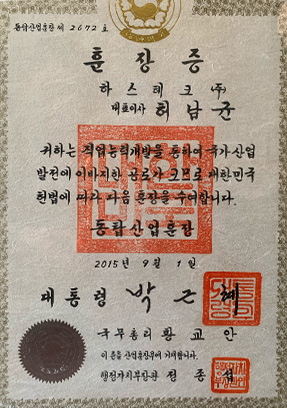 동탑산업훈장 제 2672 호
훈장증
하스테크 (주)
대표이사 허남균
귀하는 직업능력개발을 통하여 국가산업
발전에 이바지한 공로가 크므로 대한민국
헌법에 따라 다음 훈장을 수여합니다.
동탑산업훈장
2015년 9월 1일
대통령 박근혜
국무총리 황교안
이 증을 산업훈장부에 기재합니다.
행정자치부장관 정종섭